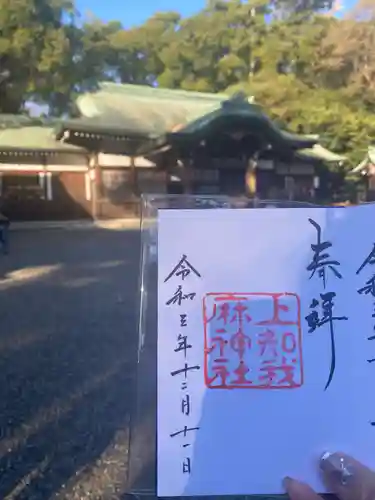 奉拝
上知我
麻神社
令和三年十二月十一日